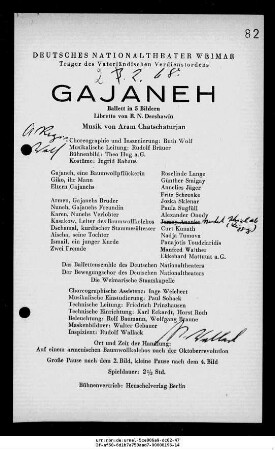 82
DEUTSCHES NATIONALTHEATER WEIMAR
Träger des Vaterländischen Verdienstordens
GAJANEH
Ballett in 5 Bildern
Libretto von R. N. Dershawin
Musik von Aram Chatschaturjan
Choreographie und Inszenierung: Ruth Wolf
Musikalische Leitung: Rudolf Bräuer
Bühnenbild: Theo Hug a. G.
Kostüme: Ingrid Rahaus
Gajaneh, eine Baumwollpflückerin Roselinde Lange
Giko, ihr Mann Günther Smigay
Eltern Gajanehs Annelies Jäger
Fritz Schmohl
Armen, Gajanehs Bruder Joska Sklenar
Nuneh, Gajanehs Freundin Paula Sugfüll
Karen, Nunehs Verlobter Alexander Osady
Kasakow, Leiter des Baumwollkolchos
Dschamal, kurdischer Stammesältester Curt Kunath
Aischa, seine Tochter Nadja Tomova
Ismail, ein junger Kurde Panajotis Teodoridis
Zwei Fremde Manfred Walther
Ekkehard Matteus a. G.
Das Ballettensemble des Deutschen Nationaltheaters
Der Bewegungschor des Deutschen Nationaltheaters
Die Weimarische Staatskapelle
Choreographische Assistenz: Inge Weichert
Musikalische Einstudierung: Paul Soback
Technische Leitung: Friedrich Prinzhausen
Technische Einrichtung: Karl Eckardt, Horst Roth
Beleuchtung: Rolf Baumann, Wolfgang Braune
Maskenbildner: Walter Gebauer
Inspizient: Rudolf Wallack
Ort und Zeit der Handlung:
Auf einem armenischen Baumwollkolchos nach der Oktoberrevolution
Große Pause nach dem 2. Bild, kleine Pause nach dem 4. Bild
Spieldauer: 2½ Std.
Bühnenvertrieb: Henschelverlag Berlin